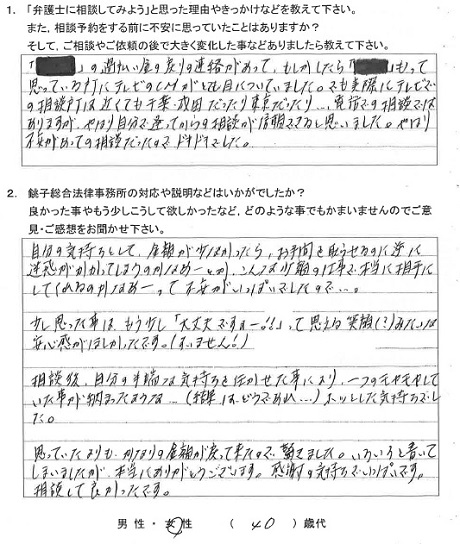 1. 「弁護士に相談してみよう」と思った理由やきっかけなどを教えて下さい。
また、相談予約をする前に不安に思っていたことはありますか？
そして、ご相談やご依頼の後で大きく変化した事などありましたら教えて下さい。
「　」の過払い金の戻りの連絡があって、もしかしたら「　」もって
思っていた時にテレビのCMがとても目についていました。でも実際にテレビで
の相談所は近くても千葉・成田だったり東京だったり…、電話での相談では
ありますが、やはり自分で逢ってからの相談が信頼できると思いました。やはり
不安があっての相談だったのでドキドキでした。
2. 銚子総合法律事務所の対応や説明などはいかがでしたか？
良かった事やもう少しこうして欲しかったなど、どのような事でもかまいませんのでご意
見・ご感想をお聞かせ下さい。
自分の気持ちとして、金額が少なかったら、お手間を取らせるのに逆に
迷惑がかかってしまうのかなぁーとか、こんな少額の仕事で、本当に相手に
してくれるのかなぁーって不安がいっぱいでしたので…。
少し思った事は、もう少し「大丈夫ですよー!!」って思える笑顔(?)みたいな
安心感がほしかったです。(すいません!)
相談後、自分の半端な気持ちを活かせた事により、一つのモヤモヤして
いた事が納まったような…(結果は、どうであれ…)ホッとした気持ちでし
た。
思っていたよりも、かなりの金額が戻って来たので、驚きました。いろいろと書いて
しまいましたが、本当にありがとうございます。感謝の気持ちでいっぱいです。
相談して良かったです。
男 性 ・ 女 性　（　40　）歳代